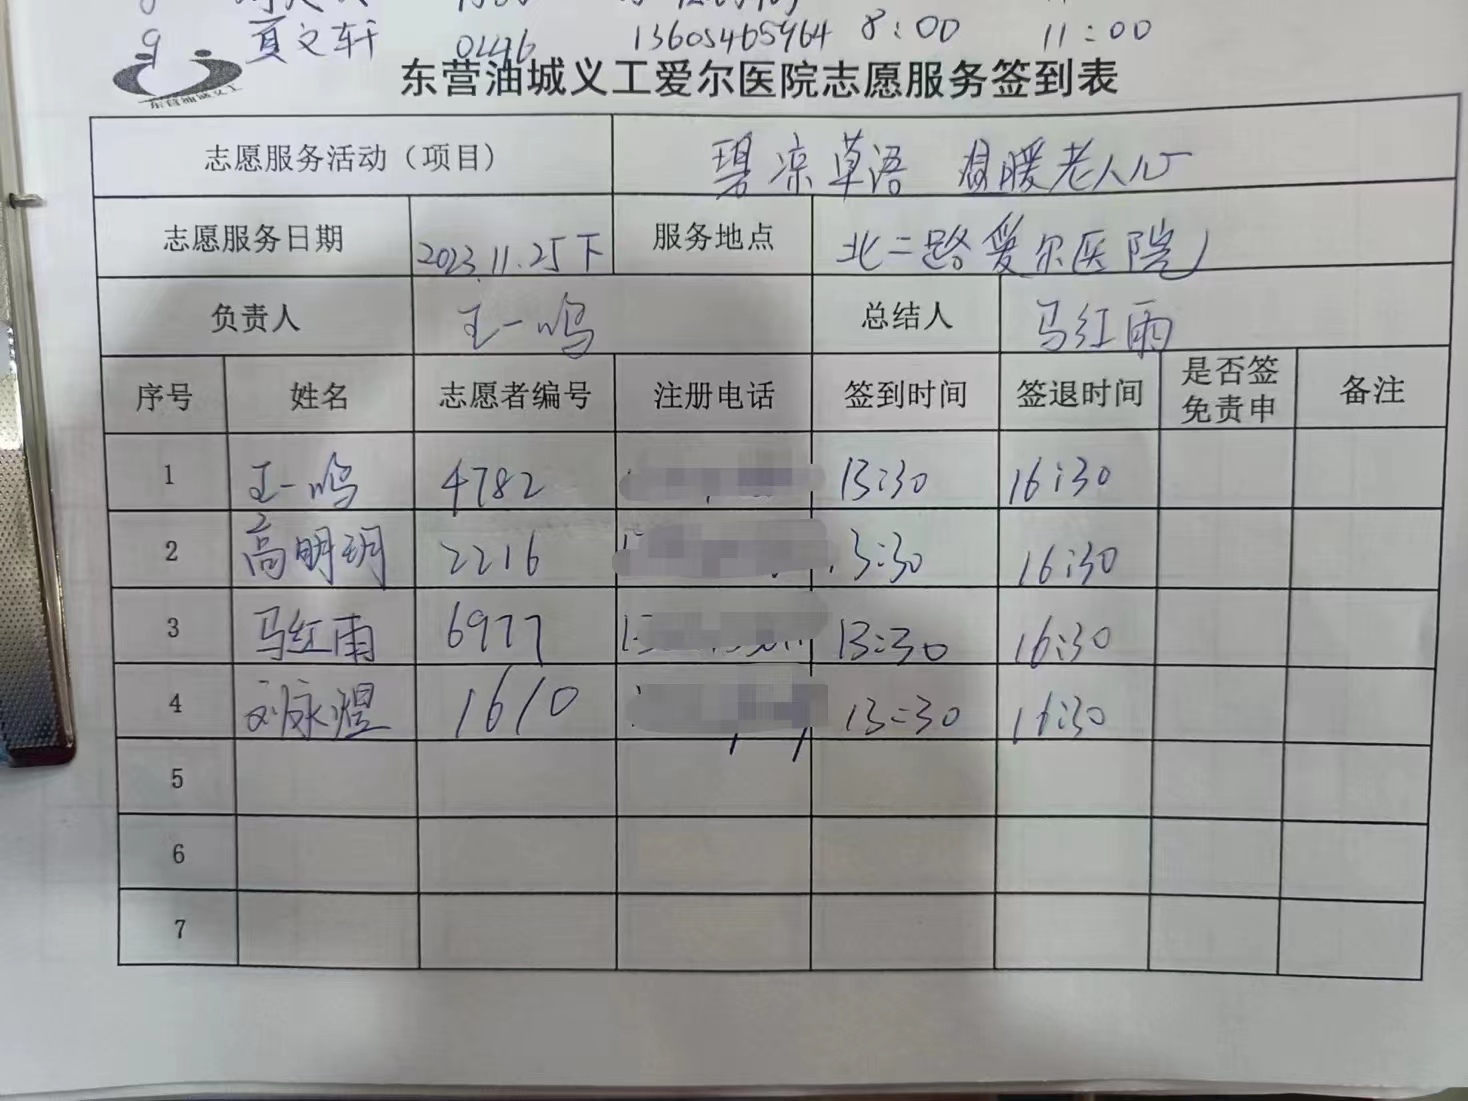 9 夏文轩 0446 13605465964 8:00 11:00
东营油城义工
东营油城义工爱尔医院志愿服务签到表
志愿服务活动（项目） 碧凉草语 温暖老人心
志愿服务日期 2023.11.25下 服务地点 北二路爱尔医院
负责人 王一鸣 总结人 马红雨
序号 姓名 志愿者编号 注册电话 签到时间 签退时间 是否签免责申 备注
1 王一鸣 4782 13:30 16:30
2 高明玥 2216 13:30 16:30
3 马红雨 6977 13:30 16:30
4 刘永煜 1610 13:30 16:30
5
6
7